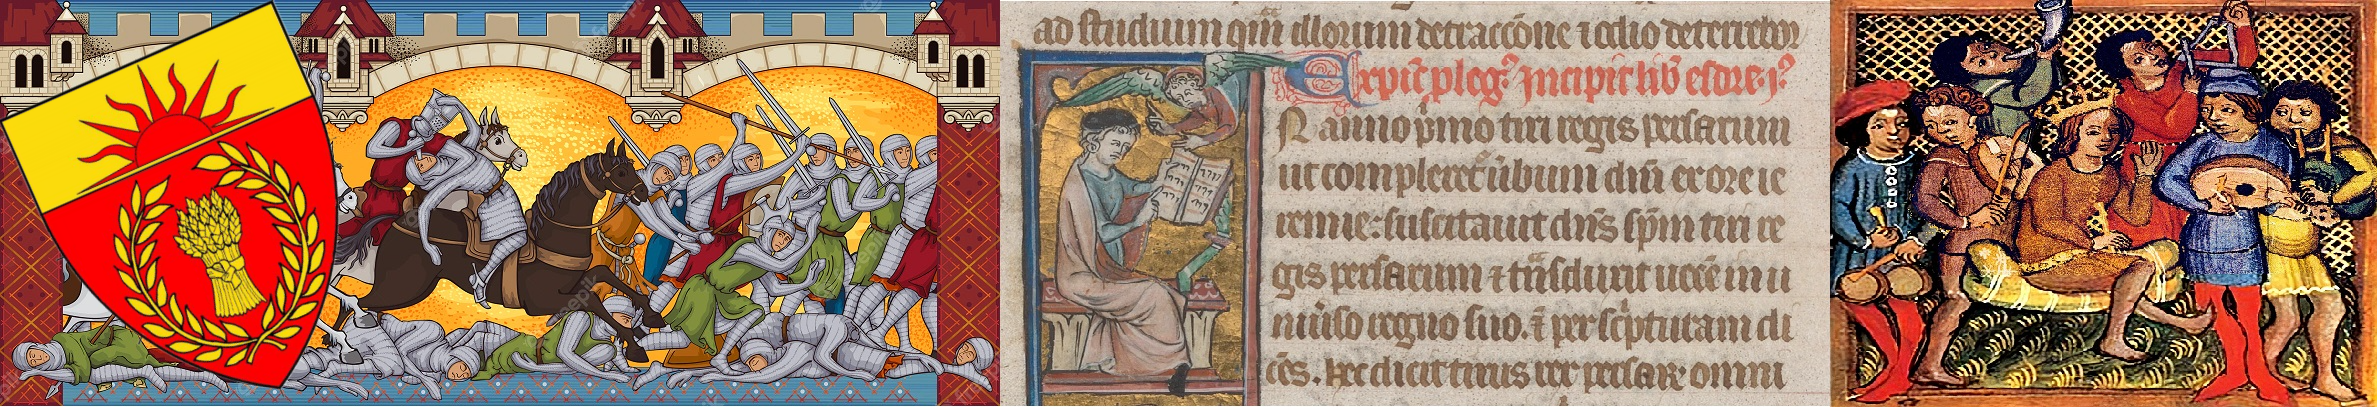 ad studium qm̄ illorum detraccōne ⁊ odio deterrebor
Explic̄ plog⁹ Incipit lib̄ esdre i⁹
N anno p̄mo ciri regis persarum
ut compleret̉ ūbum dn̄i ex ore ie
remie: suscitauit dn̄s sp̄m ciri re
gis persarum ⁊ tn̄sduxit uocē in u
niūso regno suo. ⁊ per sc̄pturam di
cēs. hec dicit cirus rex persaꝝ omni